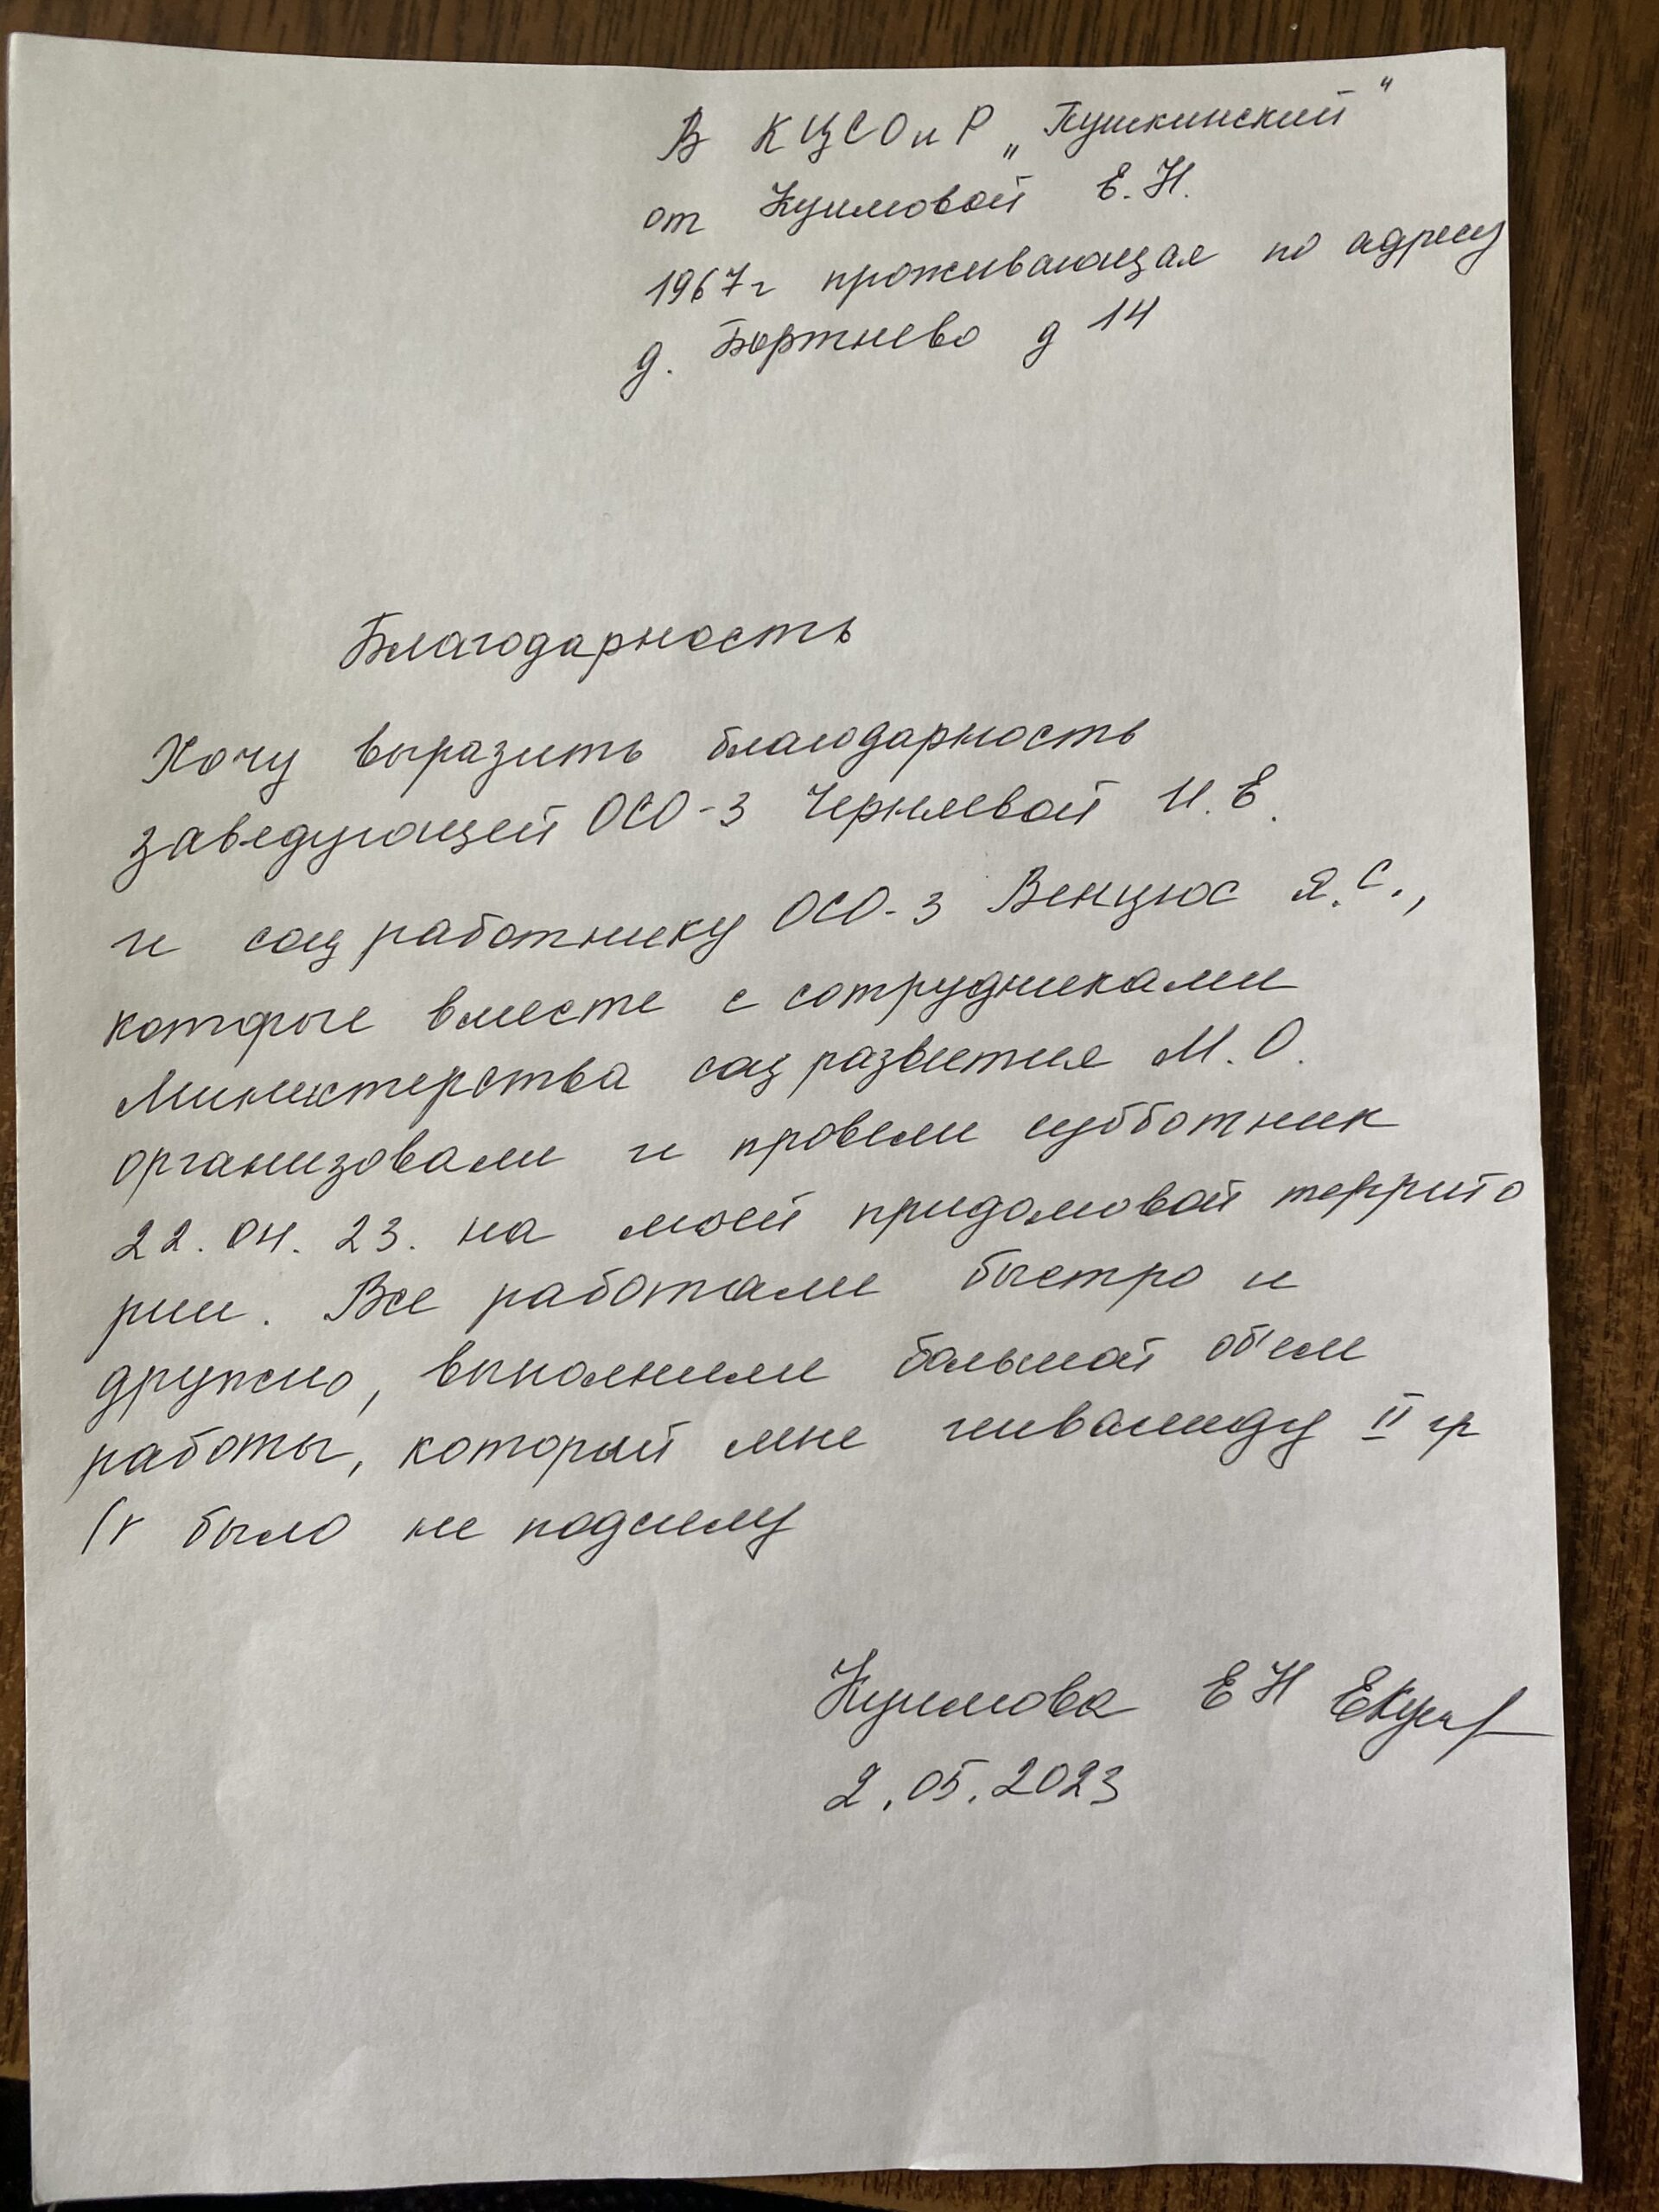 В КЦСОиР „Пушкинский"
от Куимовой Е.Н.
1967г проживающая по адресу
д. Бортнево д 14
Благодарность
Хочу выразить благодарность
заведующей ОСО-3 Чернявой И.Е.
и соц работнику ОСО-3 Венцюс Я.С.,
которые вместе с сотрудниками
Министерства соц развития М.О.
организовали и провели субботник
22.04.23. на моей придомовой террито
рии. Все работали быстро и
дружно, выполнили большой об'ем
работы, который мне инвалиду II гр
было не подсилу
Куимова Е Н
2.05.2023